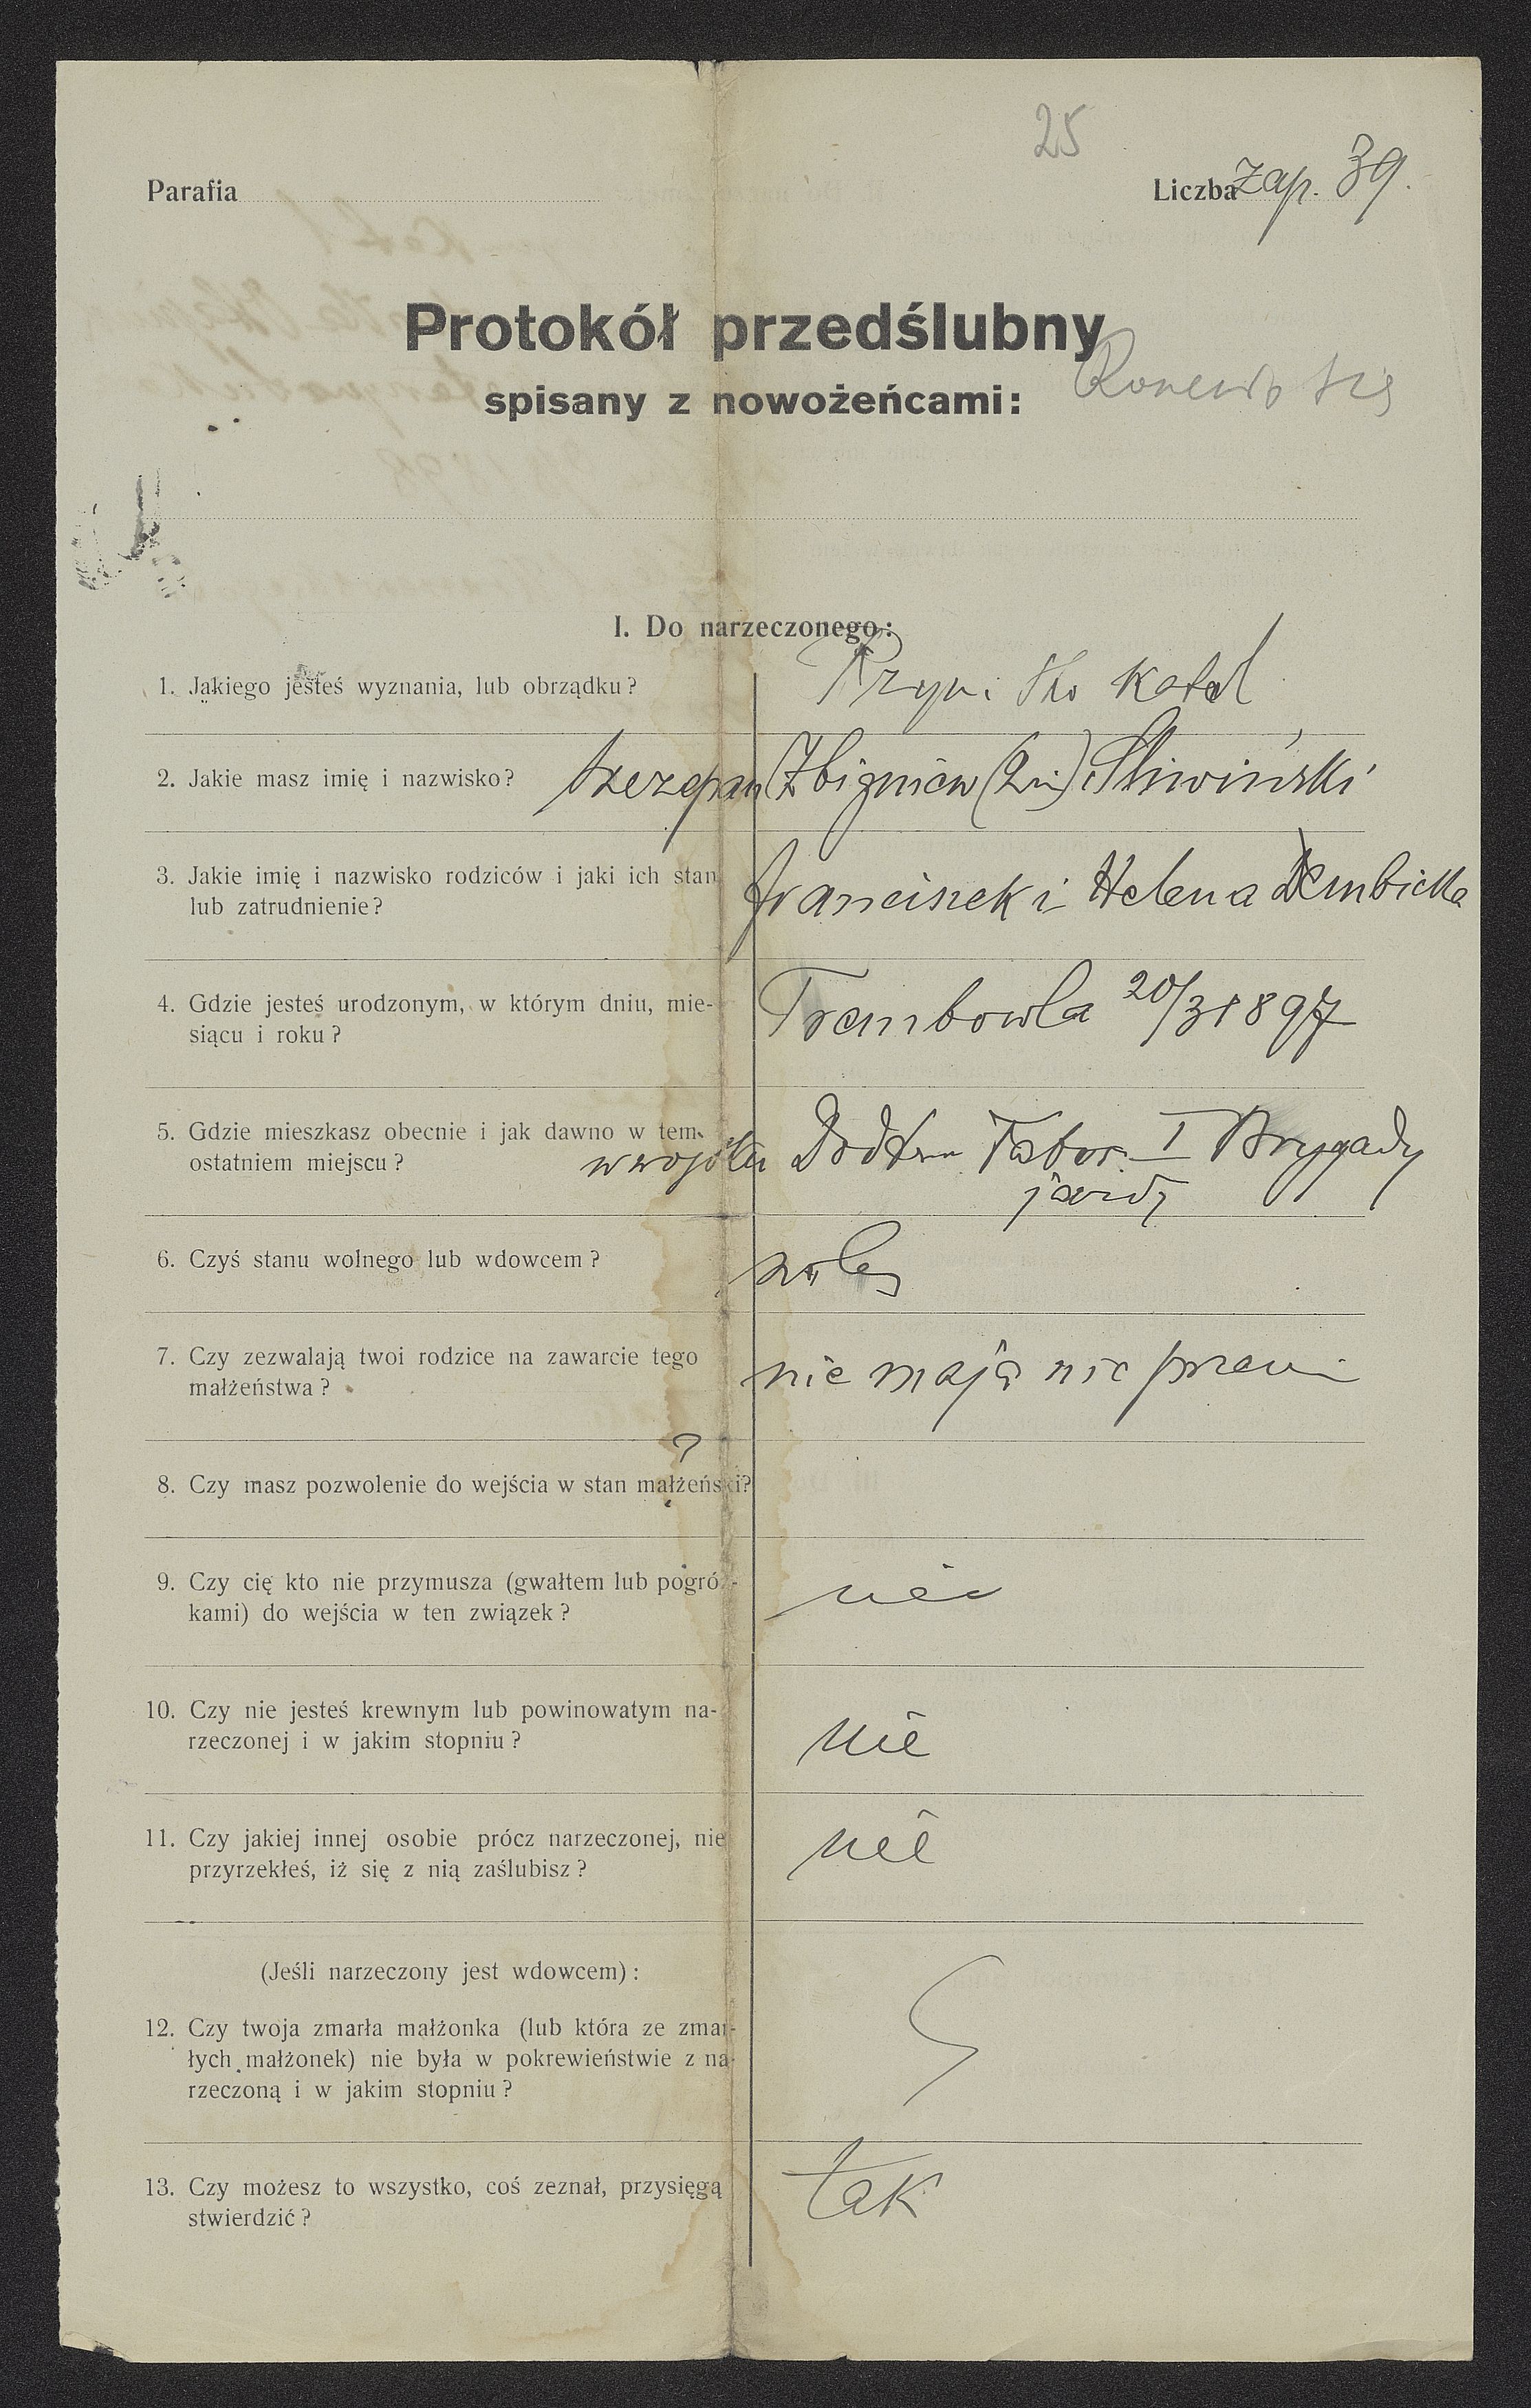 25
Parafia
Liczba zap. 39.
Protokół przedślubny
spisany z nowożeńcami:
I. Do narzeczonego:
1. Jakiego jesteś wyznania, lub obrządku?
Rzym sko Katol
2. Jakie masz imię i nazwisko?
Szczepan Zbigniew (2im) Śliwiński
3. Jakie imię i nazwisko rodziców i jaki ich stan
lub zatrudnienie?
Franciszek i Helena Dembicka
4. Gdzie jesteś urodzonym, w którym dniu, mie-
siącu i roku?
Trembowla 20/3 1897
5. Gdzie mieszkasz obecnie i jak dawno w tem
ostatniem miejscu?
w wojsku Tabor. I Brygady
jazdy
6. Czyś stanu wolnego lub wdowcem?
wolny
7. Czy zezwalają twoi rodzice na zawarcie tego
małżeństwa?
nie mają nic przeciw
?
8. Czy masz pozwolenie do wejścia w stan małżeński?
9. Czy cię kto nie przymusza (gwałtem lub pogróż-
kami) do wejścia w ten związek?
nie
10. Czy nie jesteś krewnym lub powinowatym na-
rzeczonej i w jakim stopniu?
nie
11. Czy jakiej innej osobie prócz narzeczonej, nie
przyrzekłeś, iż się z nią zaślubisz?
nie
(Jeśli narzeczony jest wdowcem):
12. Czy twoja zmarła małżonka (lub która ze zmar-
łych małżonek) nie była w pokrewieństwie z na-
rzeczoną i w jakim stopniu?
13. Czy możesz to wszystko, coś zeznał, przysięgą
stwierdzić?
tak